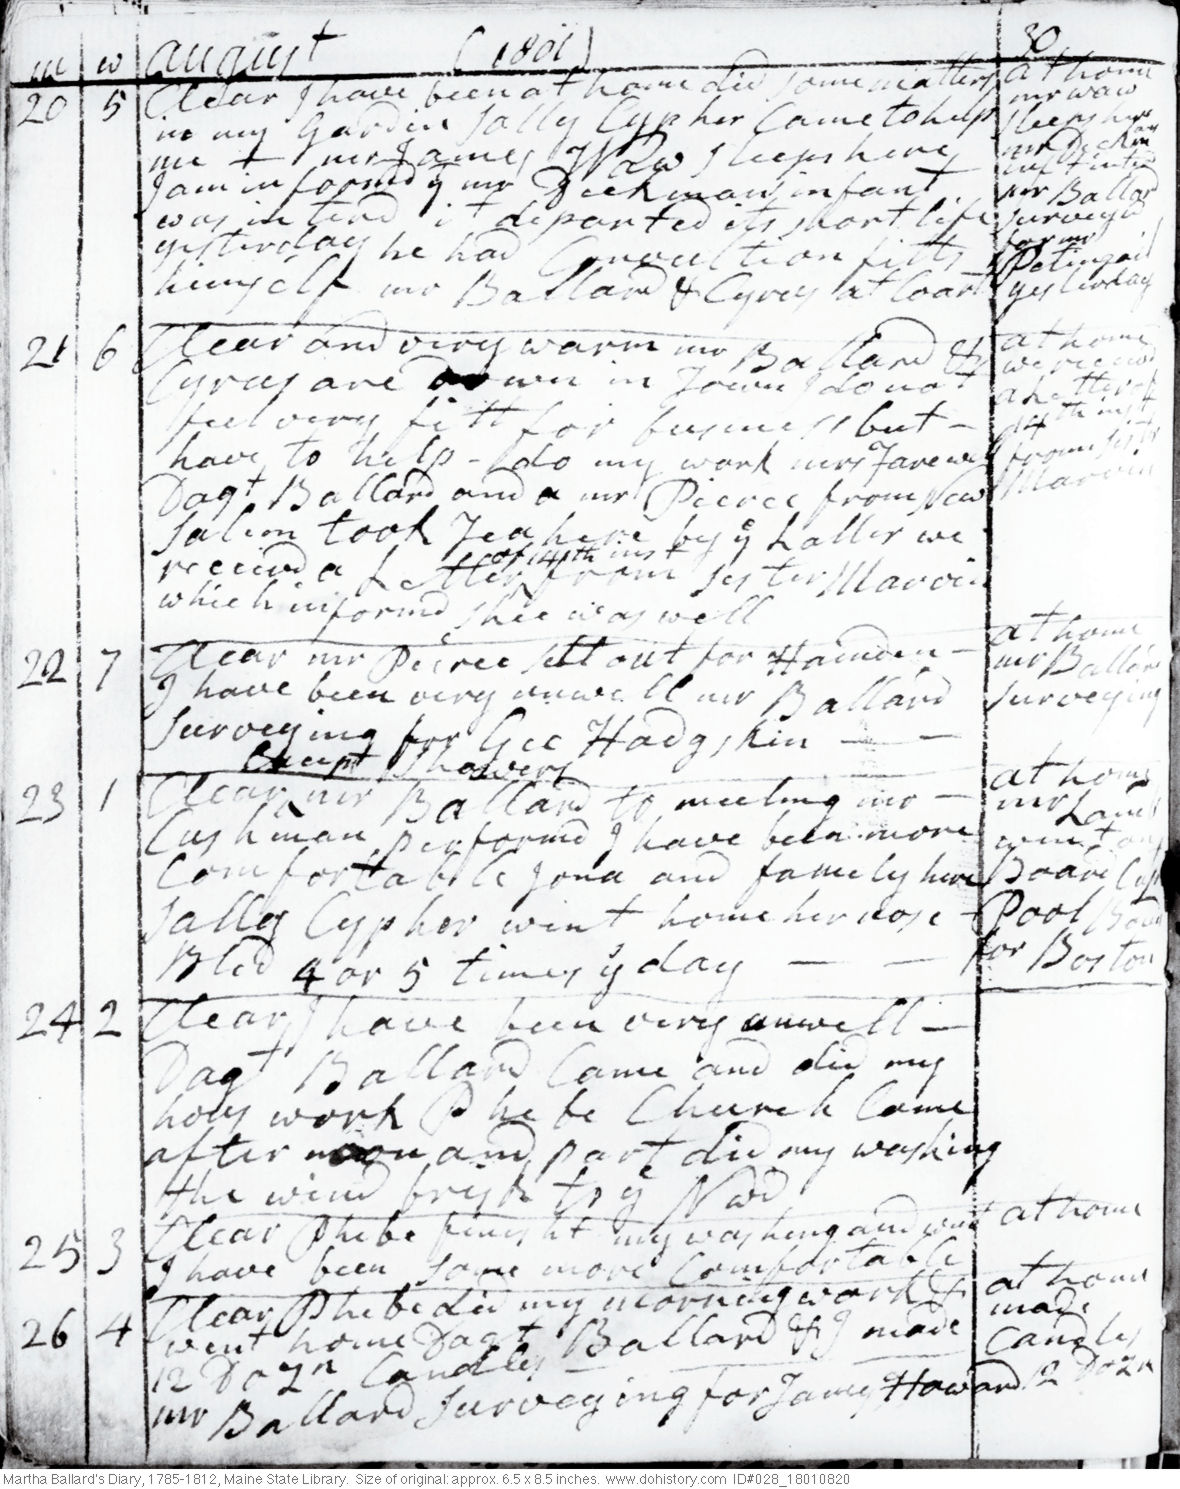 m w August (1801) 30
20 5 Clear I have been at home did some matters
in my Gardin Sally Cypher Came to help
me + mr James Waw sleeps here
I am informd ye mr Dickman infant
was interd it departed its short life
yesterday he had Convultion fitts
himself mr Ballard & Cyrus at Coart
at home
mr waw
sleeps here
mr Dickman
inft interd
mr Ballard
surveyd
for mr
Petingail
yesterday
21 6 Clear and very warm mr Ballard &
Cyrus are down in Town I do not
feel very fitt for business but -
have to help - do my work mrs Farewell
Dagt Ballard and a mr Pierce from New
Salem took Tea here by ye Latter we
receivd a Letter of 14th inst from sister Marvin
which informd shee was well
at home
we receivd
a Letter of
14th inst
from sistr
Marvin
22 7 Clear mr Peirce sett out for Hamden -
I have been very unwell mr Ballard
surveying for Gee Hodgskin - -
at home
mr Ballard
surveying
Except Showers
23 1 Clear mr Ballard to meeting mr -
Cushman performd I have been more
Comfortable Jona and famely here
Sally Cypher went home her nose
Bled 4 or 5 times ye day - -
at home
mr Lambd
went on
Board Capt
Pool Bound
for Boston
24 2 Clear I have been very unwell -
Dagt Ballard Came and did my
hous work Phebe Church Came
after noon and part did my washing
the wind brisk to ye Nwd
25 3 Clear Phebe finisht my washing and went
I have been some more Comfortable
at home
26 4 Clear Phebe did my morning work &
went home Dagt Ballard & I made
12 Dozn Candles -
mr Ballard surveying for James Howard
at home
made
Candles
12 Dozn
Martha Ballard's Diary, 1785-1812, Maine State Library. Size of original: approx. 6.5 x 8.5 inches. www.dohistory.com ID#028_18010820